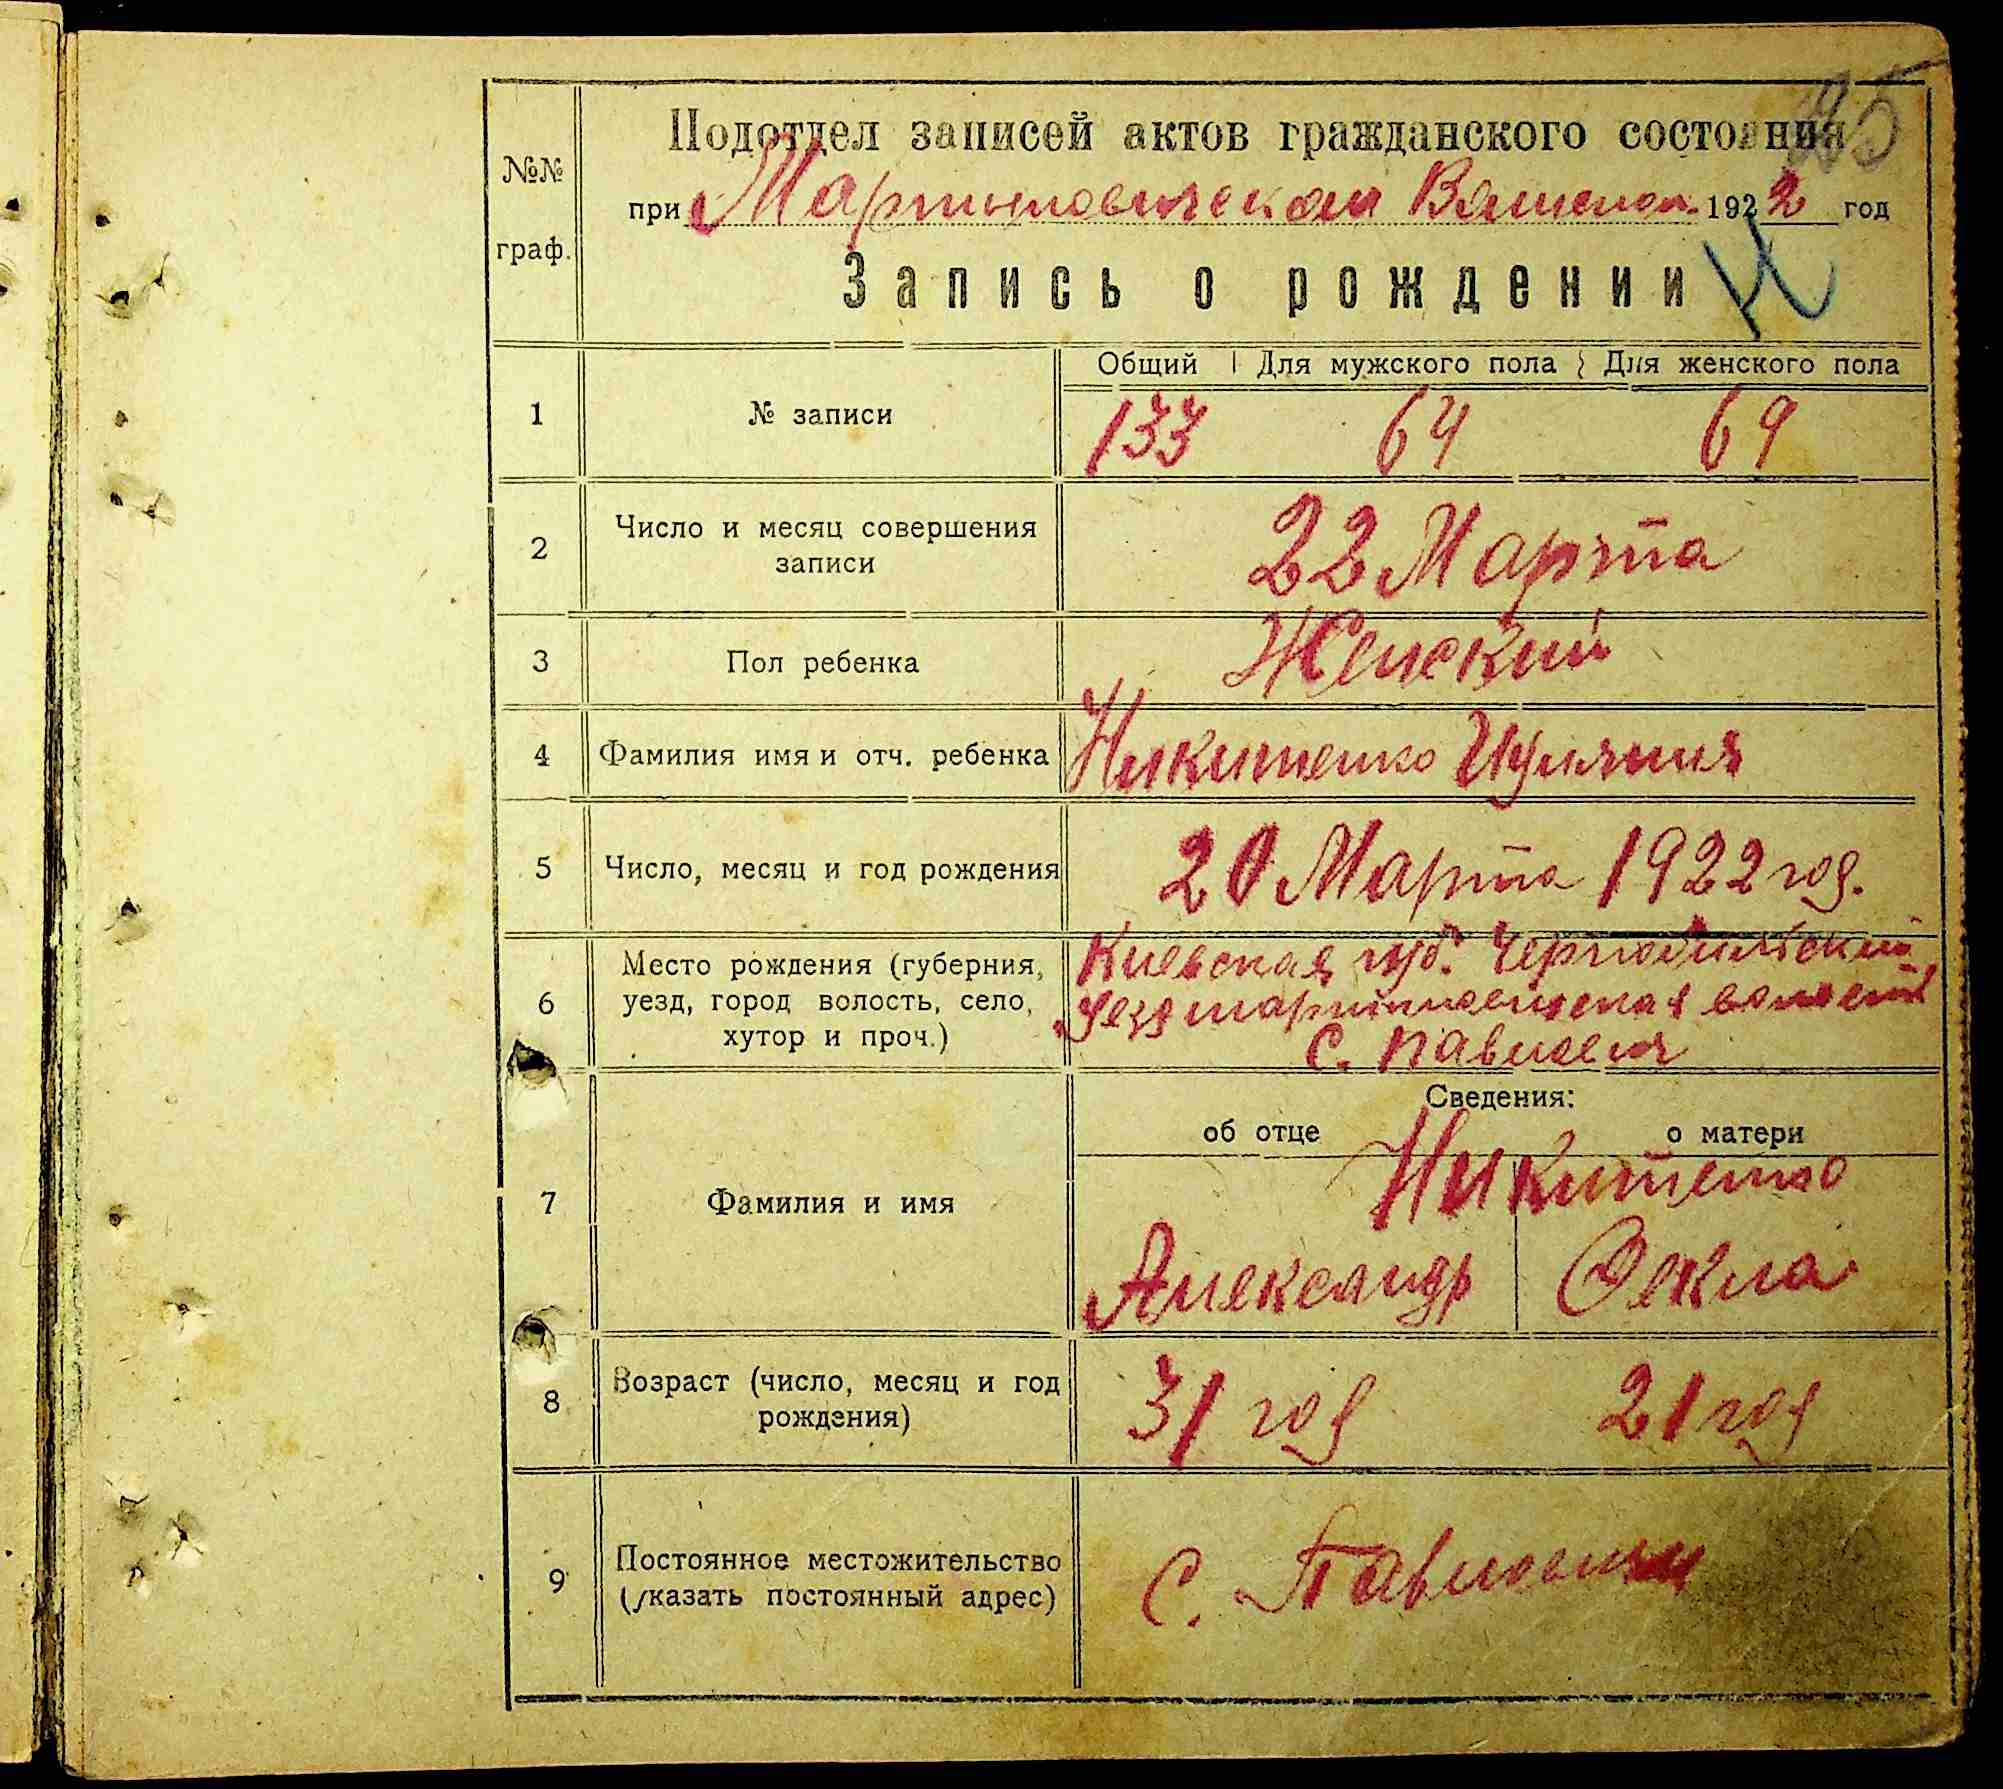 25
Подотдел записей актов гражданского состояния
№№ граф.
при Мартыновической Волисполк. 1922 год
Запись о рождении
Н
Общий Для мужского пола Для женского пола
1 № записи 133 64 69
2 Число и месяц совершения
записи
22 Марта
3 Пол ребенка Женский
4 Фамилия имя и отч. ребенка Никитенко
5 Число, месяц и год рождения 20 Марта 1922 год.
6 Место рождения (губерния,
уезд, город волость, село,
хутор и проч.)
Киевская губ. Чернобильский
Уезд мартиновическая волость
с.
Сведения:
об отце о матери
7 Фамилия и имя
Никитенко
Александр Фекла
8 Возраст (число, месяц и год
рождения)
31 год 21 год
9 Постоянное местожительство
(указать постоянный адрес)
С.